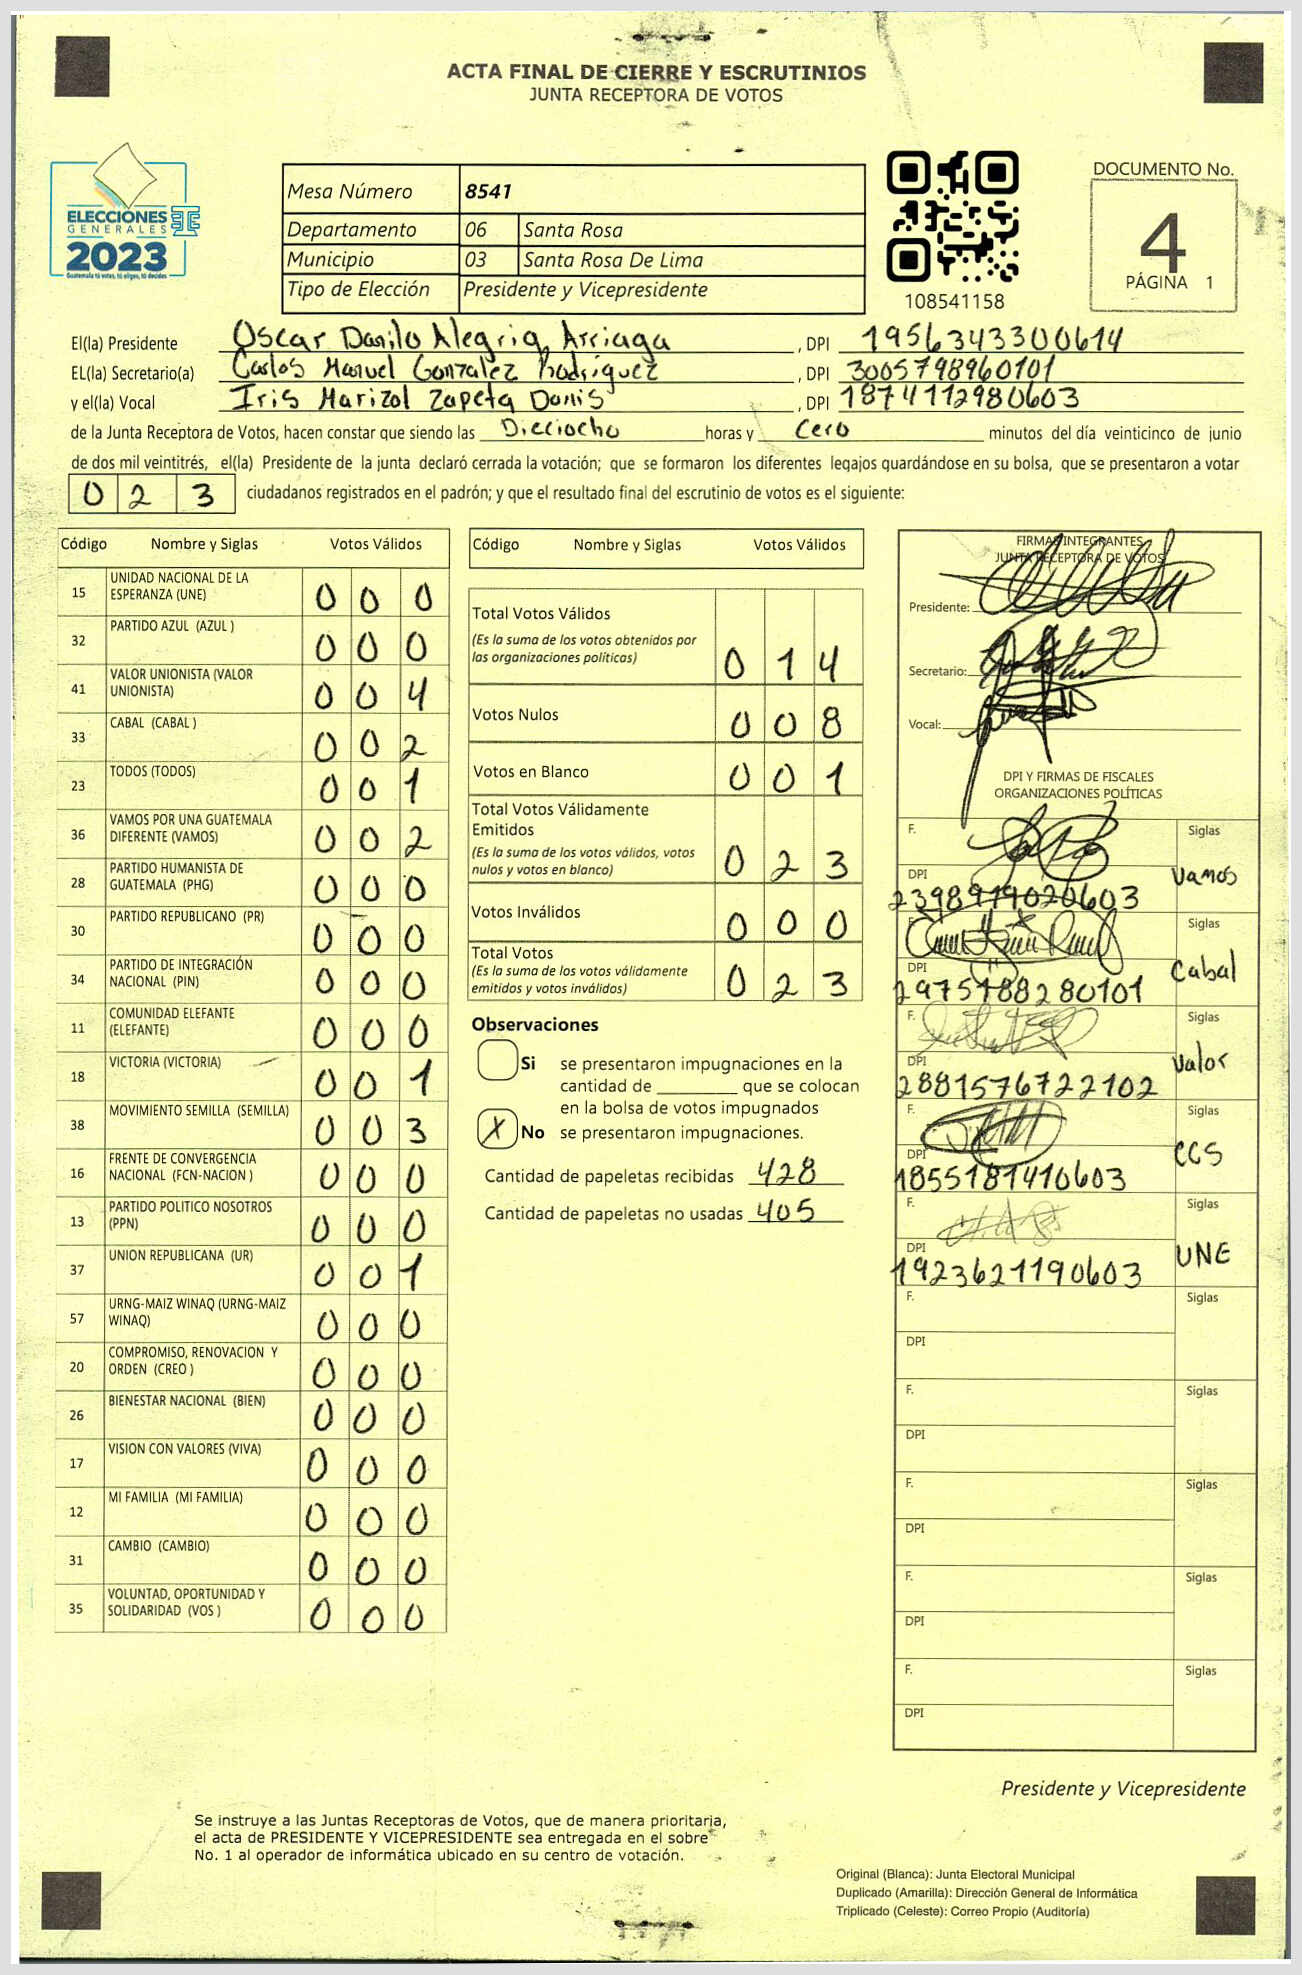 ACTA FINAL DE CIERRE Y ESCRUTINIOS
JUNTA RECEPTORA DE VOTOS
ELECCIONES
GENERALES
2023
Guatemala tú votas, tú eliges, tú decides
Mesa Número 8541
Departamento 06 Santa Rosa
Municipio 03 Santa Rosa De Lima
Tipo de Elección Presidente y Vicepresidente
108541158
DOCUMENTO No.
4
PÁGINA 1
El(la) Presidente Oscar Danilo Alegria Arriaga, DPI 1956343300614
EL(la) Secretario(a) Carlos Manuel Gonzalez Rodriguez, DPI 3005798960101
y el(la) Vocal Iris Marizol Zapeta Donis, DPI 1874112980603
de la Junta Receptora de Votos, hacen constar que siendo las Dieciocho horas y Cero minutos del día veinticinco de junio
de dos mil veintitrés, el(la) Presidente de la junta declaró cerrada la votación; que se formaron los diferentes legajos guardándose en su bolsa, que se presentaron a votar
0 2 3 ciudadanos registrados en el padrón; y que el resultado final del escrutinio de votos es el siguiente:
Código Nombre y Siglas Votos Válidos
15 UNIDAD NACIONAL DE LA ESPERANZA (UNE) 0 0 0
32 PARTIDO AZUL (AZUL ) 0 0 0
41 VALOR UNIONISTA (VALOR UNIONISTA) 0 0 4
33 CABAL (CABAL ) 0 0 2
23 TODOS (TODOS) 0 0 1
36 VAMOS POR UNA GUATEMALA DIFERENTE (VAMOS) 0 0 2
28 PARTIDO HUMANISTA DE GUATEMALA (PHG) 0 0 0
30 PARTIDO REPUBLICANO (PR) 0 0 0
34 PARTIDO DE INTEGRACIÓN NACIONAL (PIN) 0 0 0
11 COMUNIDAD ELEFANTE (ELEFANTE) 0 0 0
18 VICTORIA (VICTORIA) 0 0 1
38 MOVIMIENTO SEMILLA (SEMILLA) 0 0 3
16 FRENTE DE CONVERGENCIA NACIONAL (FCN-NACION ) 0 0 0
13 PARTIDO POLITICO NOSOTROS (PPN) 0 0 0
37 UNION REPUBLICANA (UR) 0 0 1
57 URNG-MAIZ WINAQ (URNG-MAIZ WINAQ) 0 0 0
20 COMPROMISO, RENOVACION Y ORDEN (CREO ) 0 0 0
26 BIENESTAR NACIONAL (BIEN) 0 0 0
17 VISION CON VALORES (VIVA) 0 0 0
12 MI FAMILIA (MI FAMILIA) 0 0 0
31 CAMBIO (CAMBIO) 0 0 0
35 VOLUNTAD, OPORTUNIDAD Y SOLIDARIDAD (VOS ) 0 0 0
Código Nombre y Siglas Votos Válidos
Total Votos Válidos
(Es la suma de los votos obtenidos por
las organizaciones políticas) 0 1 4
Votos Nulos 0 0 8
Votos en Blanco 0 0 1
Total Votos Válidamente
Emitidos
(Es la suma de los votos válidos, votos
nulos y votos en blanco) 0 2 3
Votos Inválidos 0 0 0
Total Votos
(Es la suma de los votos válidamente
emitidos y votos inválidos) 0 2 3
Observaciones
Si se presentaron impugnaciones en la
cantidad de ________ que se colocan
en la bolsa de votos impugnados
X No se presentaron impugnaciones.
Cantidad de papeletas recibidas 428
Cantidad de papeletas no usadas 405
FIRMAS INTEGRANTES
JUNTA RECEPTORA DE VOTOS
Presidente:
Secretario:
Vocal:
DPI Y FIRMAS DE FISCALES
ORGANIZACIONES POLÍTICAS
F. Siglas
DPI 2398979020603 Vamos
F. Siglas
DPI 2975188280101 Cabal
F. Siglas
DPI 2881576722102 Valor
F. Siglas
DPI 1855181410603 CGS
F. Siglas
DPI 1923621190603 UNE
F. Siglas
DPI
F. Siglas
DPI
F. Siglas
DPI
F. Siglas
DPI
F. Siglas
DPI
Presidente y Vicepresidente
Se instruye a las Juntas Receptoras de Votos, que de manera prioritaria,
el acta de PRESIDENTE Y VICEPRESIDENTE sea entregada en el sobre
No. 1 al operador de informática ubicado en su centro de votación.
Original (Blanca): Junta Electoral Municipal
Duplicado (Amarilla): Dirección General de Informática
Triplicado (Celeste): Correo Propio (Auditoría)